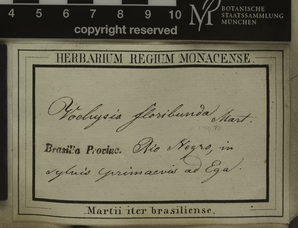 5 6 7 8 9 10
copyright reserved
BOTANISCHE
STAATSSAMMLUNG
MÜNCHEN
HERBARIUM REGIUM MONACENSE.
Vochysia floribunda Mart.
Brasilia Provinc. Rio Negro, in
sylvis primaevis ad Ega.
Martii iter brasiliense.